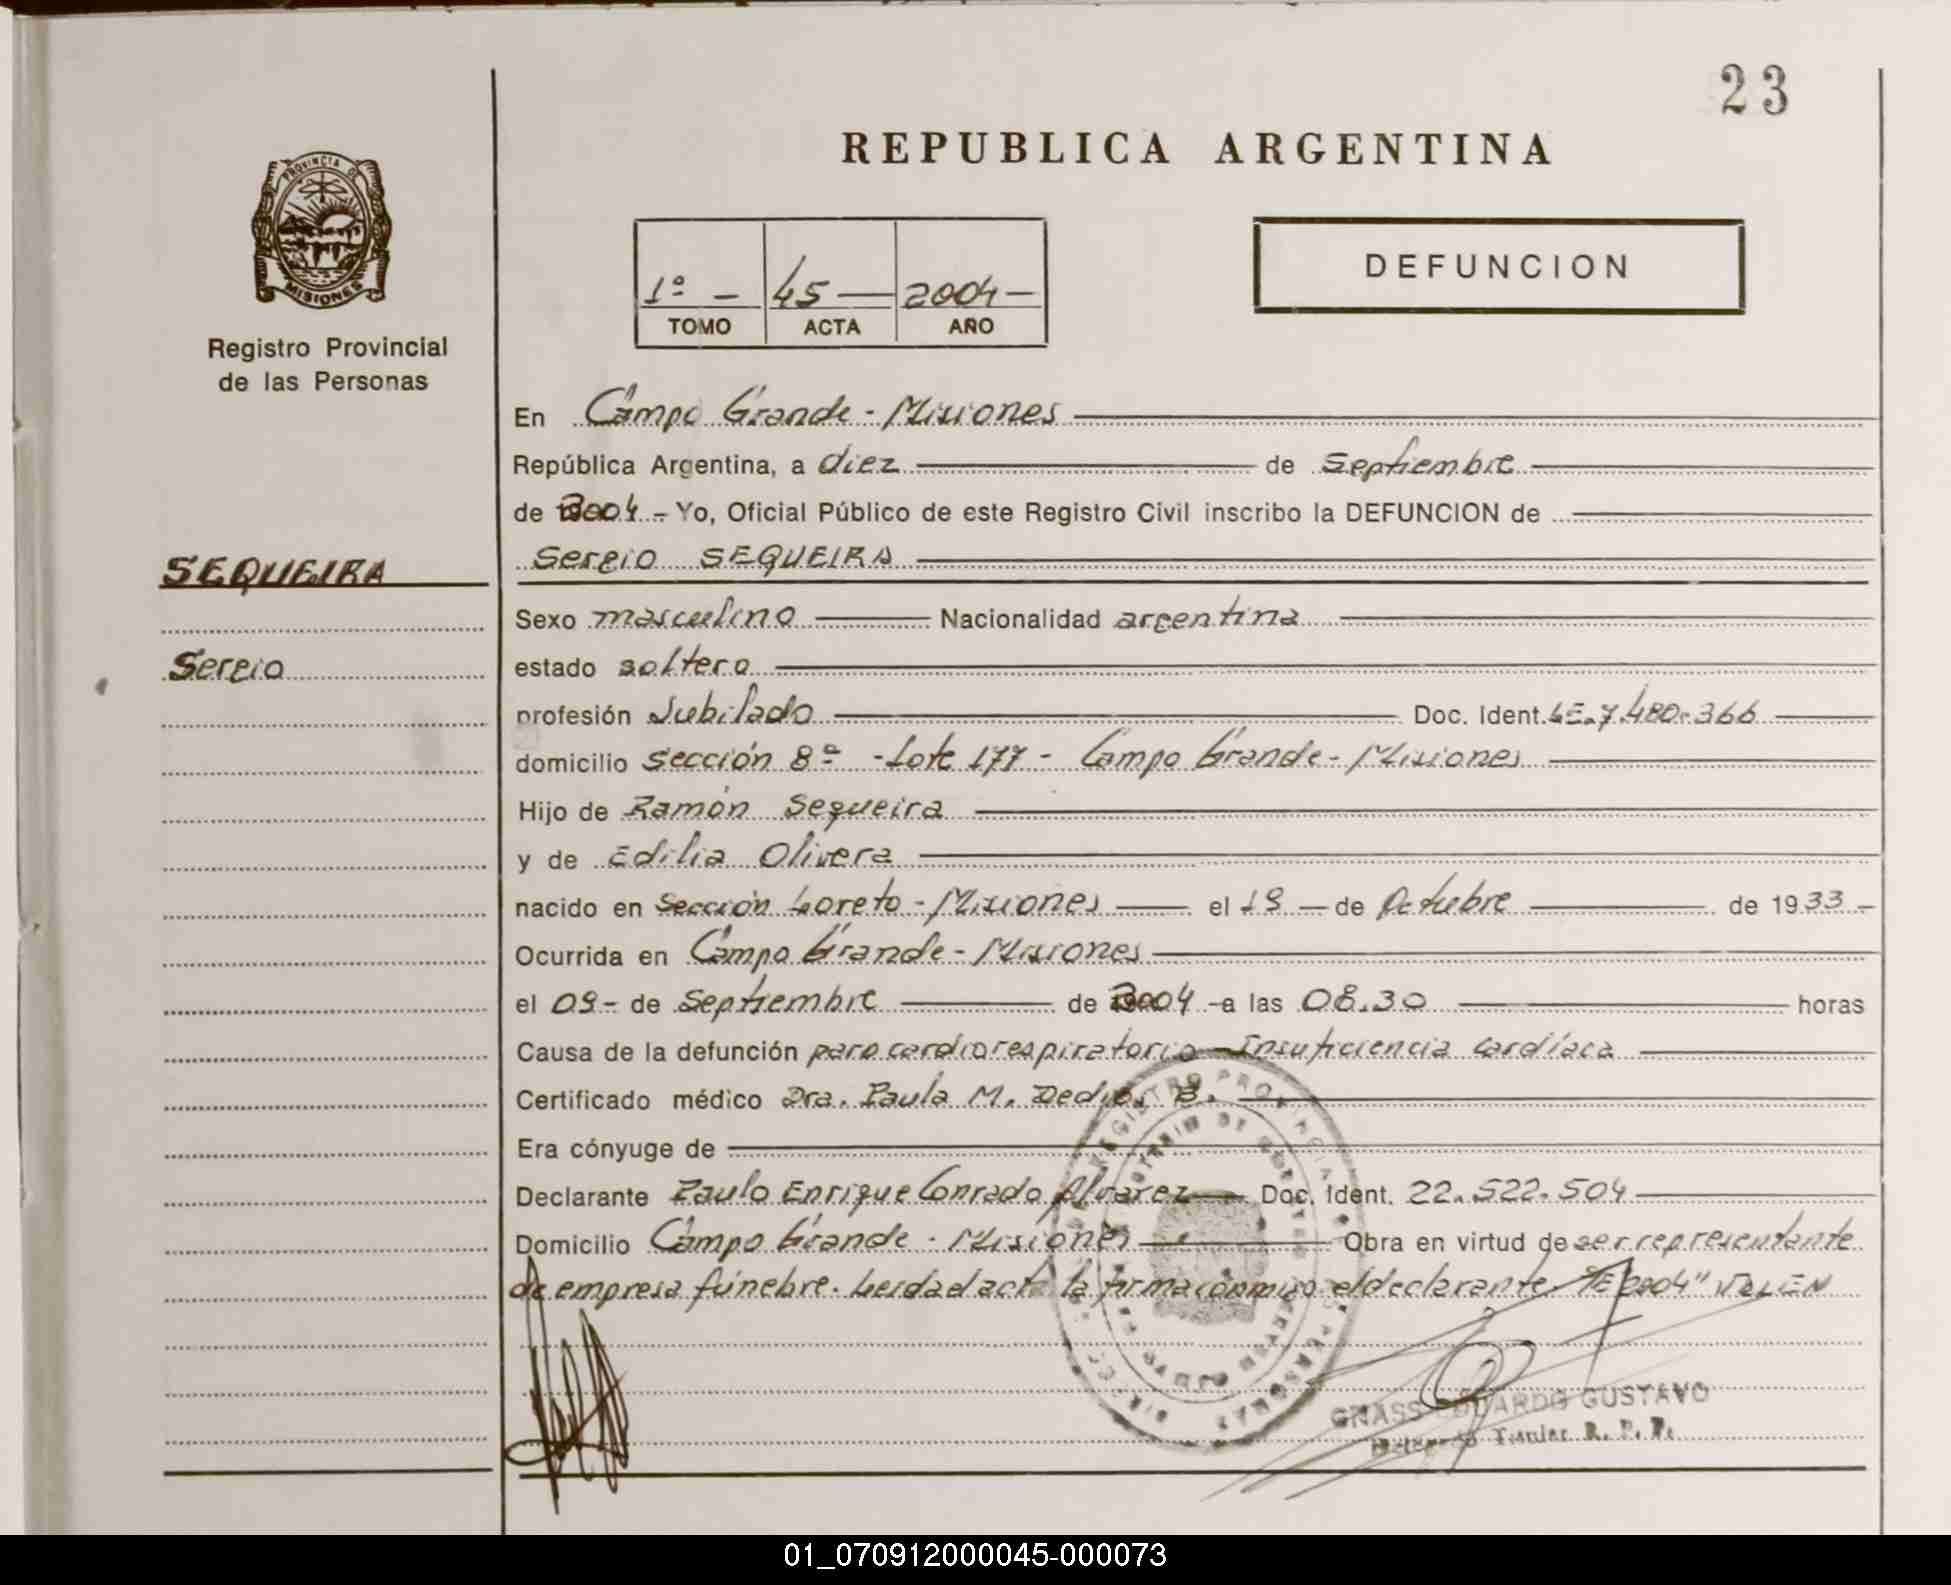 23
REPUBLICA ARGENTINA
PROVINCIA DE
MISIONES
Registro Provincial
de las Personas
1º - 45 — 2004 —
TOMO ACTA AÑO
DEFUNCION
En Campo Grande - Misiones
República Argentina, a diez de Septiembre
de 2004 - Yo, Oficial Público de este Registro Civil inscribo la DEFUNCION de
Sergio SEQUEIRA
SEQUEIRA
Sergio
Sexo masculino Nacionalidad argentina
estado soltero
profesión Jubilado Doc. Ident. LE. 7.480.366
domicilio Sección 8ª - Lote 177 - Campo Grande - Misiones
Hijo de Ramón Sequeira
y de Edilia Olivera
nacido en Sección Loreto - Misiones el 19 de Octubre de 1933
Ocurrida en Campo Grande - Misiones
el 09 - de Septiembre de 2004 - a las 08.30 horas
Causa de la defunción paro cardiorespiratorio - Insuficiencia cardíaca
Certificado médico Dra. Paula M. B.
Era cónyuge de
Declarante Paulo Enrique Conrado Alvarez Doc. Ident. 22.522.504
Domicilio Campo Grande - Misiones Obra en virtud de ser representante
de empresa fúnebre. Leida el acta la firma conmigo el declarante "2004" VALEN
REGISTRO PROVINCIAL PERSONAS
GNASS EDUARDO GUSTAVO
Titular R. P. P.
01_070912000045-000073